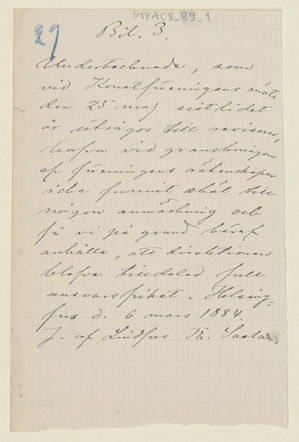 STYAC8_89_1
29
Bil. 3.
Undertecknade, som
vid Konstföreningens möte
den 25 maj sistlidet
år utsågos till revisorer,
hafva vid granskningen
af föreningens räkenskaper
icke funnit skäl till
någon anmärkning och
få vi på grund häraf
anhålla, att direktionen
blefve tilldelad full
ansvarsfrihet. Helsing-
fors d. 6 mars 1884.
J. af Lindfors Th.